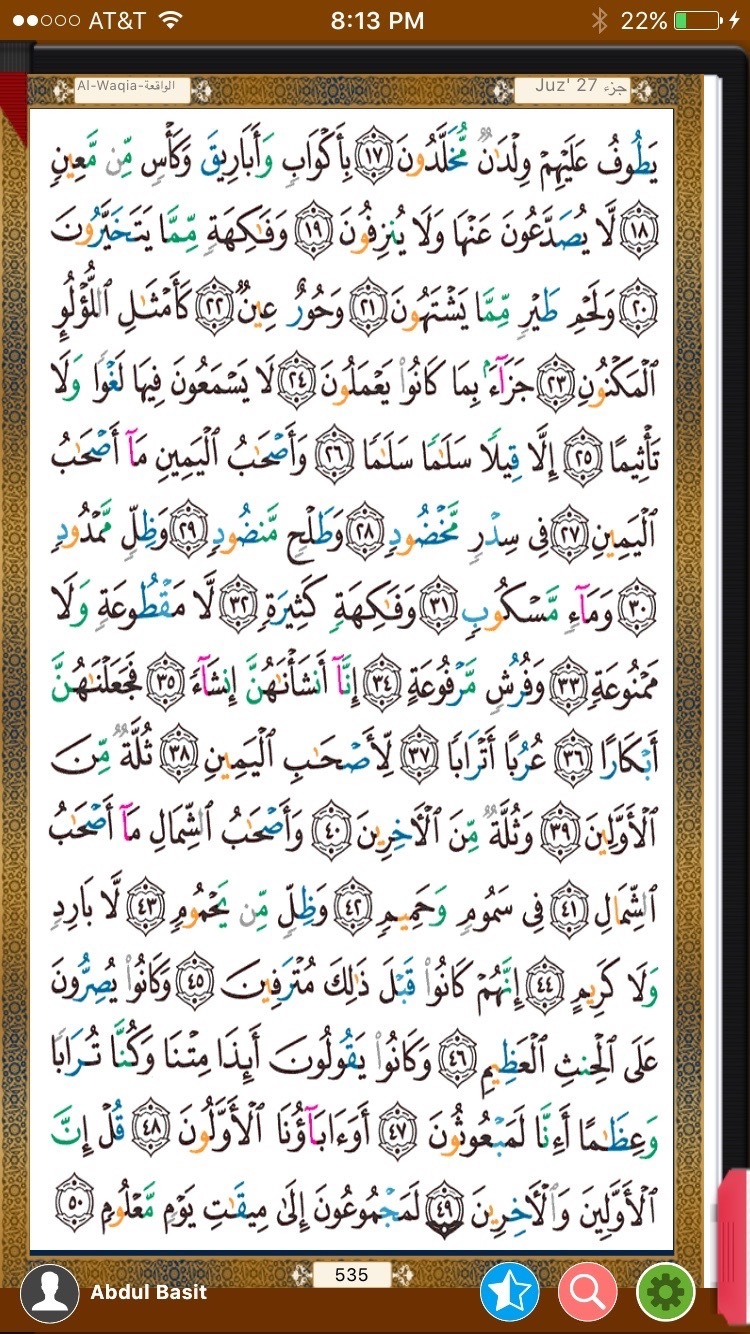 AT&T 8:13 PM 22%
الواقعة-Al-Waqia Juz' 27 جزء
يَطُوفُ عَلَيْهِمْ وِلْدَٰنٌ مُّخَلَّدُونَ ١٧ بِأَكْوَابٍ وَأَبَارِيقَ وَكَأْسٍ مِّن مَّعِينٍ
١٨ لَّا يُصَدَّعُونَ عَنْهَا وَلَا يُنزِفُونَ ١٩ وَفَٰكِهَةٍ مِّمَّا يَتَخَيَّرُونَ
٢٠ وَلَحْمِ طَيْرٍ مِّمَّا يَشْتَهُونَ ٢١ وَحُورٌ عِينٌ ٢٢ كَأَمْثَٰلِ ٱللُّؤْلُؤِ
ٱلْمَكْنُونِ ٢٣ جَزَآءًۢ بِمَا كَانُوا۟ يَعْمَلُونَ ٢٤ لَا يَسْمَعُونَ فِيهَا لَغْوًا وَلَا
تَأْثِيمًا ٢٥ إِلَّا قِيلًا سَلَٰمًا سَلَٰمًا ٢٦ وَأَصْحَٰبُ ٱلْيَمِينِ مَآ أَصْحَٰبُ
ٱلْيَمِينِ ٢٧ فِى سِدْرٍ مَّخْضُودٍ ٢٨ وَطَلْحٍ مَّنضُودٍ ٢٩ وَظِلٍّ مَّمْدُودٍ
٣٠ وَمَآءٍ مَّسْكُوبٍ ٣١ وَفَٰكِهَةٍ كَثِيرَةٍ ٣٢ لَّا مَقْطُوعَةٍ وَلَا
مَمْنُوعَةٍ ٣٣ وَفُرُشٍ مَّرْفُوعَةٍ ٣٤ إِنَّآ أَنشَأْنَٰهُنَّ إِنشَآءً ٣٥ فَجَعَلْنَٰهُنَّ
أَبْكَارًا ٣٦ عُرُبًا أَتْرَابًا ٣٧ لِّأَصْحَٰبِ ٱلْيَمِينِ ٣٨ ثُلَّةٌ مِّنَ
ٱلْأَوَّلِينَ ٣٩ وَثُلَّةٌ مِّنَ ٱلْءَاخِرِينَ ٤٠ وَأَصْحَٰبُ ٱلشِّمَالِ مَآ أَصْحَٰبُ
ٱلشِّمَالِ ٤١ فِى سَمُومٍ وَحَمِيمٍ ٤٢ وَظِلٍّ مِّن يَحْمُومٍ ٤٣ لَّا بَارِدٍ
وَلَا كَرِيمٍ ٤٤ إِنَّهُمْ كَانُوا۟ قَبْلَ ذَٰلِكَ مُتْرَفِينَ ٤٥ وَكَانُوا۟ يُصِرُّونَ
عَلَى ٱلْحِنثِ ٱلْعَظِيمِ ٤٦ وَكَانُوا۟ يَقُولُونَ أَئِذَا مِتْنَا وَكُنَّا تُرَابًا
وَعِظَٰمًا أَءِنَّا لَمَبْعُوثُونَ ٤٧ أَوَءَابَآؤُنَا ٱلْأَوَّلُونَ ٤٨ قُلْ إِنَّ
ٱلْأَوَّلِينَ وَٱلْءَاخِرِينَ ٤٩ لَمَجْمُوعُونَ إِلَىٰ مِيقَٰتِ يَوْمٍ مَّعْلُومٍ ٥٠
535
Abdul Basit